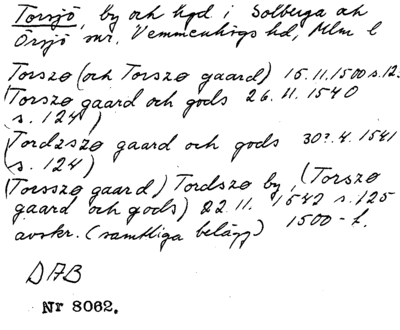 Torsjö, by och hgd i Solberga och
Örsjö snr, Vemmenhögs hd, Mlm l
Torszø (och Torszø gaard) 15.11.1500 s.12.
(Torszø gaard och gods 26.11.1540
s. 124)
(Tordzszø gaard och gods 30?.4.1541
(s. 124)
(Torsszø gaard) Tordszø by, (Torszø
gaard och gods) 22.11. 1542 s.125
avskr. (samtliga belägg) 1500-t.
DAB
Nr 8062.